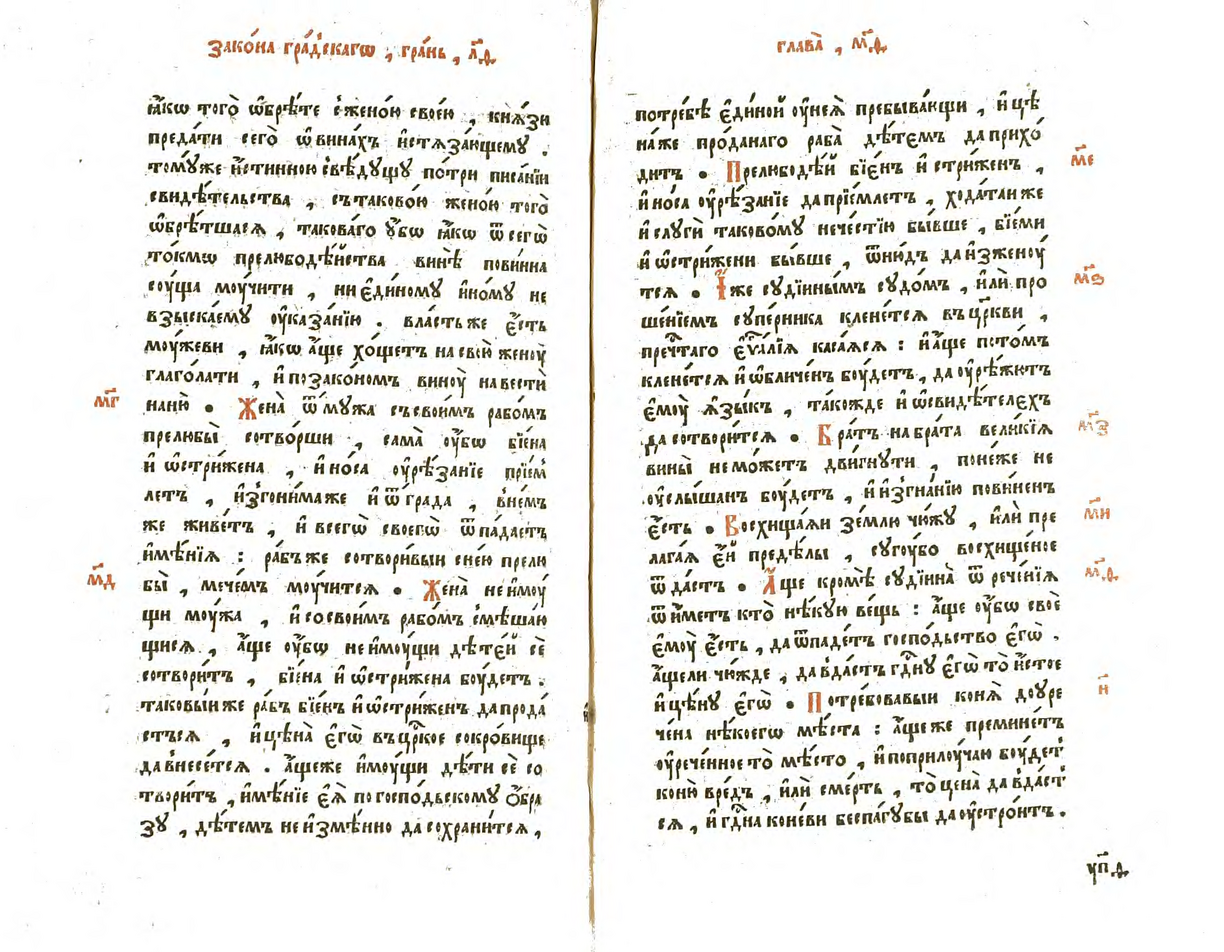 Зако́на гра́дскагѡ , гра́нь , л҃ѳ.
ꙗ҆́кѡ того̀ ѡ҆брѣ́те с̾жено́ю свое́ю , кнѧ́зи
преда́ти сего̀ ѡ҆ вина́хъ и҆стѧза́ющему .
тому́же и҆́стинною свѣ́дущу по́три писа́нїи
свидѣ́тельства , съ тако́вою жено́ю того̀
ѡ҆брѣ́тшасѧ , такова́го ᲂу҆́бѡ ꙗ҆́кѡ ѿ сегѡ̀
то́кмѡ прелюбодѣ́йства винѣ̀ пови́нна
соу́ща моу́чити , ни є҆ди́ному и҆но́му не
взыска́ему ᲂу҆каза́нїю . вла́сть же є҆́сть
моу́жеви , ꙗ҆́кѡ а҆́ще хо́щетъ на свою̀ женоу̀
глаго́лати , и҆ по зако́номъ виноу̀ навестѝ
м҃г
на ню̀ . Жена̀ ѿ му́жа съ свои́мъ рабо́мъ
прелюбы̀ сотво́рши , сама̀ ᲂу҆́бѡ бїе́на
и҆ ѡ҆стри́жена , и҆ но́са ᲂу҆рѣ́занїе прїе́м
летъ , и҆згони́ма же и҆ ѿ гра́да , в̾не́мъ
же живе́тъ , и҆ всегѡ̀ своегѡ̀ ѿпа́даетъ
и҆мѣ́нїѧ : ра́бъ же сотвори́выи с̾не́ю прелю
м҃д
бы̀ , мече́мъ моу́читсѧ . Жена̀ не и҆моу́
щи моу́жа , и҆ со свои́мъ рабо́мъ смѣша́ю
щисѧ , а҆́ще ᲂу҆́бѡ не и҆моу́щи дѣ́тей сѐ
сотвори́тъ , бїе́на и҆ ѡ҆стри́жена боу́детъ .
таковы́и же ра́бъ бїе́нъ и҆ ѡ҆стри́женъ да прода́
стъсѧ , и҆ цѣна̀ є҆гѡ̀ въ ца́рское сокро́вище
да внесе́тсѧ . а҆́ще же и҆моу́щи дѣ́ти сѐ со
твори́тъ , и҆мѣ́нїе є҆ѧ̀ по госпо́дьскому ѻ҆бра
зу̀ , дѣ́темъ не и҆змѣ́нно да сохрани́тсѧ ,
глава̀ , м҃ѳ.
потре́бѣ є҆ди́ной ᲂу҆ неѧ̀ пребыва́ющи , и҆ цѣ
на́ же про́данаго раба̀ дѣ́темъ да прихо́
м҃е
дитъ . Прелюбодѣ́й бїе́нъ и҆ стри́женъ ,
и҆ но́са ᲂу҆рѣ́занїе да прїе́млетъ , хода́таи же
и҆ слугѝ таково́му нече́стїю бы́вше , бїе́ми
и҆ ѡ҆стри́жени бы́вше , ѿню́дъ да и҆зженоу́
м҃ѕ
тсѧ . И҆́же суді́иннымъ судо́мъ , и҆лѝ про
ше́нїемъ супе́рника клене́тсѧ въ цр҃кви ,
пречⷭ҇таго є҆ѵⷢ҇лїѧ каса́ѧсѧ : и҆ а҆́ще пото́мъ
клене́тсѧ и҆ ѡ҆бличе́нъ боу́детъ , да ᲂу҆рѣ́жютъ
є҆моу̀ ꙗ҆зы́къ , та́кожде и҆ ѡ҆ свидѣ́телехъ
м҃з
да сотвори́тсѧ . Бра́тъ на бра́та вели́кїѧ
вины̀ не мо́жетъ дви́гнути , поне́же не
ᲂу҆слы́шанъ боу́детъ , и҆ и҆згна́нїю пови́ненъ
м҃и
є҆́сть . Восхища́ѧи зе́млю чю́жу , и҆лѝ пре
лага́ѧ є҆́й предѣ́лы , сугоу́бо восхище́ное
м҃ѳ.
ѿда́стъ . А҆́ще кромѣ̀ суді́инна ѿрече́нїѧ
ѿи́метъ кто̀ нѣ́кую ве́щь : а҆́ще ᲂу҆́бѡ своѐ
є҆моу̀ є҆́сть , да ѿпаде́тъ госпо́дьство є҆гѡ̀ .
а҆́ще ли чю́жде , да вда́стъ гдⷭ҇ну є҆гѡ̀ то̀ и҆́стое
н҃
и҆ цѣ́ну є҆гѡ̀ . Потре́бовавыи коня̀ до ᲂу҆ре
че́на нѣ́коегѡ мѣ́ста : а҆́ще же преми́нетъ
ᲂу҆рече́нное то̀ мѣ́сто , и҆ по прилоу́чаю боу́детъ
коню̀ вре́дъ , и҆лѝ сме́рть , то̀ цена̀ да вда́ст
сѧ , и҆ гдⷭ҇на коневѝ беспа́губы да ᲂу҆стро́итъ .
уп҃ѳ.